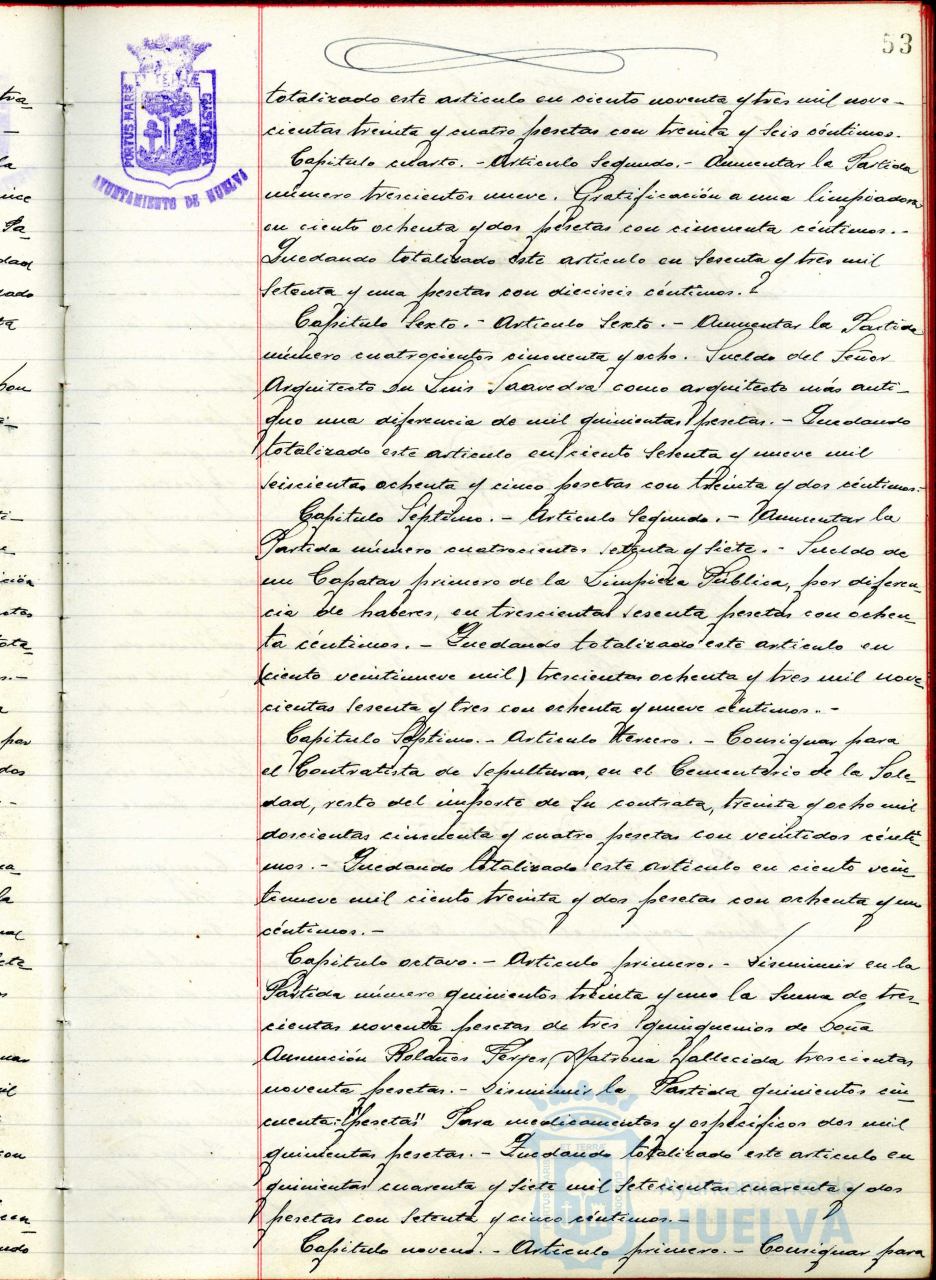 53
PORTUS MARIS ET TERRAE CUSTODIA
AYUNTAMIENTO DE HUELVA
totalizado este articulo en ciento noventa y tres mil nove-
cientas treinta y cuatro pesetas con treinta y seis céntimos.
Capitulo cuarto. - Articulo Segundo. - Aumentar la Partida
número trescientos nueve. Gratificación a una limpiadora
en ciento ochenta y dos pesetas con cincuenta céntimos. -
Quedando totalizado este articulo en Sesenta y tres mil
setenta y una pesetas con dieciseis céntimos.
Capitulo Sexto. - Articulo Sexto. - Aumentar la Partida
número cuatrocientos cincuenta y ocho. Sueldo del Señor
Arquitecto Don Luis Saavedra como arquitecto más anti-
guo una diferencia de mil quinientas pesetas. - Quedando
totalizado este articulo en ciento Setenta y nueve mil
seiscientas ochenta y cinco pesetas con treinta y dos céntimos. -
Capitulo Séptimo. - Articulo Segundo. - Aumentar la
Partida número cuatrocientos setenta y siete. - Sueldo de
un Capataz primero de la Limpieza Pública, por diferen-
cia de haberes, en trescientas sesenta pesetas con ochen-
ta céntimos. - Quedando totalizado este articulo en
(ciento veintinueve mil) trescientas ochenta y tres mil nove-
cientas sesenta y tres con ochenta y nueve céntimos. -
Capitulo Septimo. - Articulo tercero. - Consignar para
el Contratista de Sepulturas, en el Cementerio de la Sole-
dad, resto del importe de su contrata, treinta y ocho mil
doscientas cincuenta y cuatro pesetas con veintidos cénti-
mos. - Quedando totalizado este articulo en ciento vein-
tinueve mil ciento treinta y dos pesetas con ochenta y un
céntimos. -
Capitulo octavo. - Articulo primero. - Disminuir en la
Partida número quinientos treinta y uno la Suma de tres-
cientas noventa pesetas de tres quinquenios de Doña
Asunción Roldán Matrona fallecida trescientas
noventa pesetas. - Disminuir la Partida quinientos cin-
cuenta. "pesetas" Para medicamentos y especificos dos mil
quinientas pesetas. - Quedando totalizado este articulo en
quinientas cuarenta y siete mil setecientas cuarenta y dos
pesetas con setenta y cinco céntimos. -
Capitulo noveno. - Articulo primero. - Consignar para
Ayuntamiento de
HUELVA